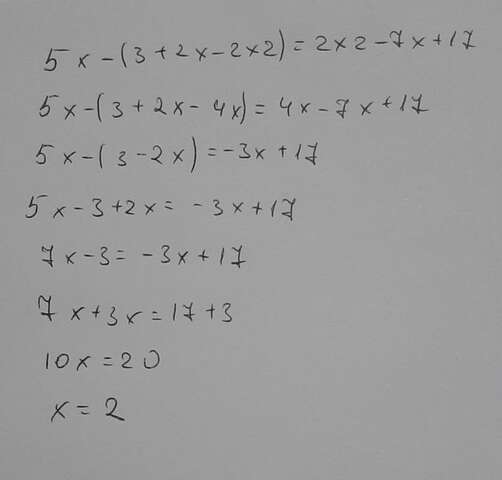 5x-(3+2x-2x2)=2x2-7x+17
5x-(3+2x-4x)=4x-7x+17
5x-(3-2x)=-3x+17
5x-3+2x=-3x+17
7x-3=-3x+17
7x+3x=17+3
10x=20
x=2